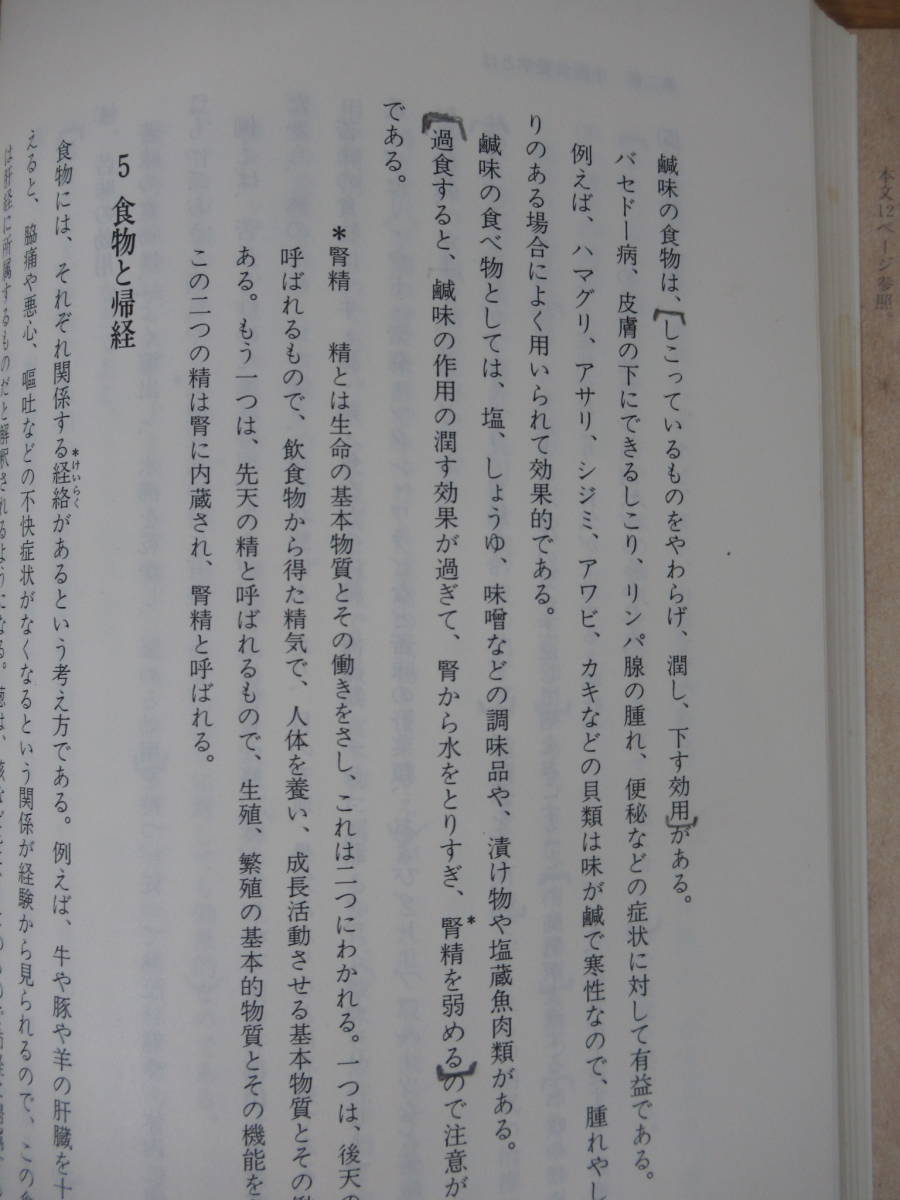 本文12ページ参照。
鹹味の食物は、しこっているものをやわらげ、潤し、下す効用がある。
バセドー病、皮膚の下にできるしこり、リンパ腺の腫れ、便秘などの症状に対して有益である。
例えば、ハマグリ、アサリ、シジミ、アワビ、カキなどの貝類は味が鹹で寒性なので、腫れやし
りのある場合によく用いられて効果的である。
鹹味の食べ物としては、塩、しょうゆ、味噌などの調味品や、漬け物や塩蔵魚肉類がある。
過食すると、鹹味の作用の潤す効果が過ぎて、腎から水をとりすぎ、腎精*を弱めるので注意が
である。
*腎精 精とは生命の基本物質とその働きをさし、これは二つにわかれる。一つは、後天の
呼ばれるもので、飲食物から得た精気で、人体を養い、成長活動させる基本物質とその
ある。もう一つは、先天の精と呼ばれるもので、生殖、繁殖の基本的物質とその機能を
この二つの精は腎に内蔵され、腎精と呼ばれる。
5 食物と帰経
食物には、それぞれ関係する*経絡けいらくがあるという考え方である。例えば、牛や豚や羊の肝臓を十
えると、脇痛や悪心、嘔吐などの不快症状がなくなるという関係が経験から見られるので、この
は肝経に所属するものだと解釈されるようになる。葱は、